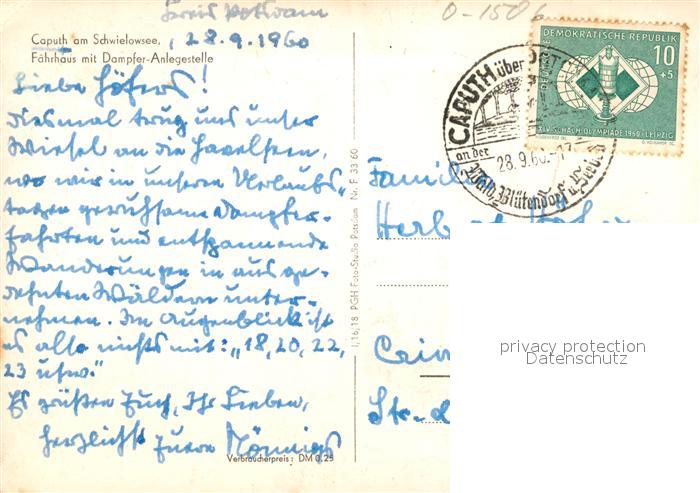 Kreis Potsdam
0-1506
Caputh am Schwielowsee,
Fährhaus mit Dampfer-Anlegestelle
, 28.9.1960
Liebe Höfers!
Diesmal trug uns unser
Wiesel an die Havelseen,
wo wir in unseren Urlaubs-
tagen geruhsame Dampfer-
fahrten und entspannende
Wanderungen in ausge-
dehnten Wäldern unter-
nehmen. Im Augenblick ist
es also nichts mit: „18, 20, 22,
23 usw."
Es grüßen Euch, Ihr Lieben,
herzlichst Eure
Verbraucherpreis: DM 0.25
I,16,18 PGH Foto-Studio Potsdam Nr. F 33 60
DEMOKRATISCHE REPUBLIK
10
+5
XIV. SCHACH-OLYMPIADE 1960 · LEIPZIG
CAPUTH über POTSDAM
28.9.60
an der
Wald, Blütendorf u.
Famili
Herb
Str.
privacy protection
Datenschutz